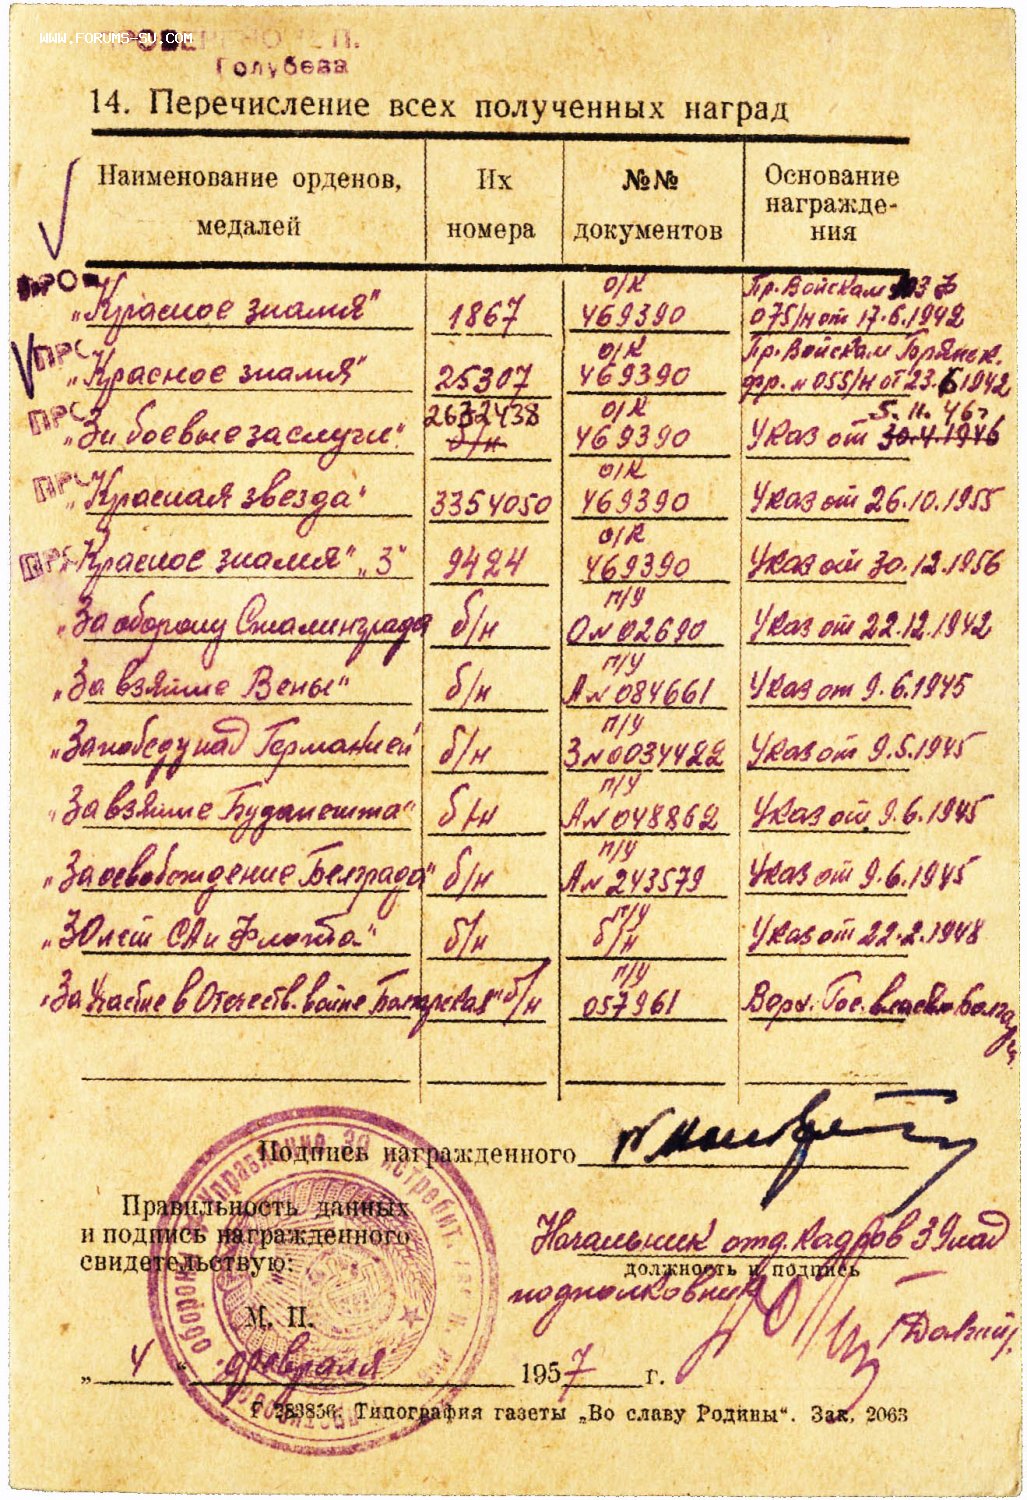 www.forums-su.com
ПРОВЕРЕНО
Голубева
14. Перечисление всех полученных наград
Наименование орденов, медалей | Их номера | №№ документов | Основание награждения
ПРО
„Красное знамя" 1867 о/к 469390 Пр. Войскам 075/н от 17.6.1942
ПРО
„Красное знамя" 25307 о/к 469390 Пр. Войскам Брянск. фр. № 055/н от 23.6.1942
ПРО
„За боевые заслуги" 2632438 б/н о/к 469390 Указ от 30.4.1946 5.11.46г
ПРО
„Красная звезда" 3354050 о/к 469390 Указ от 26.10.1955
ПРО
„Красное знамя" „3" 9424 о/к 469390 Указ от 30.12.1956
„За оборону Сталинграда б/н п/у О№02690 Указ от 22.12.1942
„За взятие Вены" б/н п/у А№084661 Указ от 9.6.1945
„За победу над Германией б/н п/у З№0034422 Указ от 9.5.1945
„За взятие Будапешта" б/н п/у А№048862 Указ от 9.6.1945
„За освобождение Белграда" б/н п/у А№243579 Указ от 9.6.1945
„30 лет СА и Флота" б/н п/у б/н Указ от 22.2.1948
„За участие в Отечеств. войне Болгарская" б/н п/у 057961 Верх. Гос. Болгар
Подпись награжденного
Правильность данных
и подпись награжденного
свидетельствую:
Начальник отд. кадров 39 иад
должность и подпись
подполковник
М. П.
„ 4 " февраля 1957 г.
Г 283856. Типография газеты „Во славу Родины". Зак. 2063